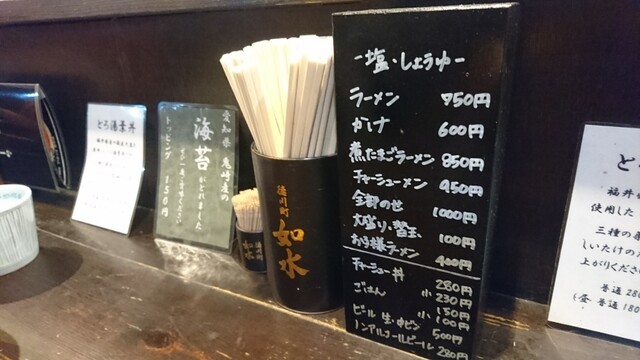 とろ湯葉丼
愛知県 鬼崎産の
海苔がとれました
トッピング 150円
徳川町
如水
徳川町
如水
-塩・しょうゆ-
ラーメン 750円
かけ 600円
煮たまごラーメン 850円
チャーシューメン 950円
全部のせ 1000円
大盛り・替玉 100円
お子様ラーメン 400円
チャーシュー丼 280円
小 230円
ごはん 150円
小 100円
ビール 生・中ビン 500円
ノンアルコールビール 280円
と
福井
使用した
三種の
しいたけの
上がりくださ
普通 280
普通 180